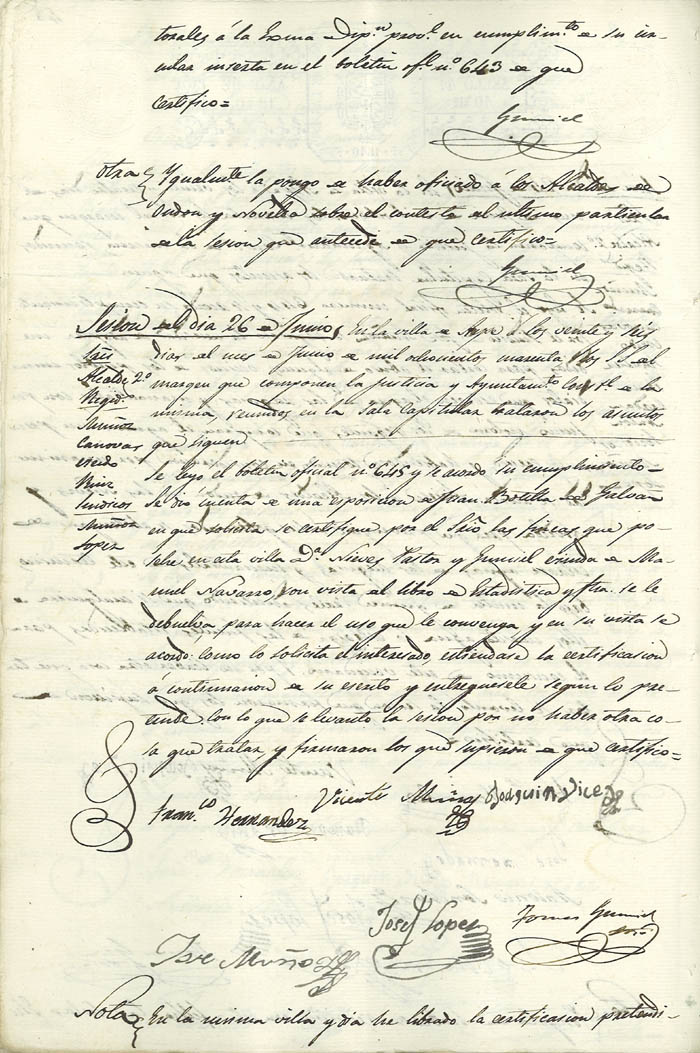 torales á la Exma Dip.n prov.l en cumplim.to de su cir-
cular inserta en el boletin ofi.l nº 643 de que
certifico=
Gumiel
Otra Ygualmte la pongo de haber oficiado á los Alcaldes de
y Novelda sobre el contesto del ultimo particular
de la sesion que antecede de que certifico=
Gumiel
Sesion del dia 26 de Junio
En la villa de Aspe á los veinte y seis
dias del mes de Junio de mil ochocientos cuarenta, los SS del
margen que componen la Justicia y Ayuntam.to Const.l de la
misma, reunidos en la Sala Capitular trataron los asuntos
que siguen
Sres
Alcalde 2º
Regid.s
Muñoz
Canovas
Cerdo
Ruiz
Sindicos
Muñoz
Lopez
Se leyo el boletin oficial nº 645 y se acordo su cumplimiento=
Se dió cuenta de una esposicion de Juan Botella de Galvan
en que solicita se certifique por el Srio las fincas que po-
sehe en esta villa D.a Nieves Pastor y Gumiel viuda de Ma-
nuel Navarro, con vista del libro de Estadistica y fho. se le
debuelva para hacer el uso que le convenga y en su vista se
acordo: como lo solicita el interesado, estiendase la certificacion
á continuacion de su escrito y entreguesele segun lo pre-
tende con lo que se levanto la sesion por no haber otra co-
sa que tratar, y firmaron los que supieron de que certifico=
Fran.co Hernandez
Vicente Muñoz
Joaquin Vicedo
José Muñoz
Josef Lopez
Tomas Gumiel
Nota En la misma villa y dia he librado la certificacion pretendi-